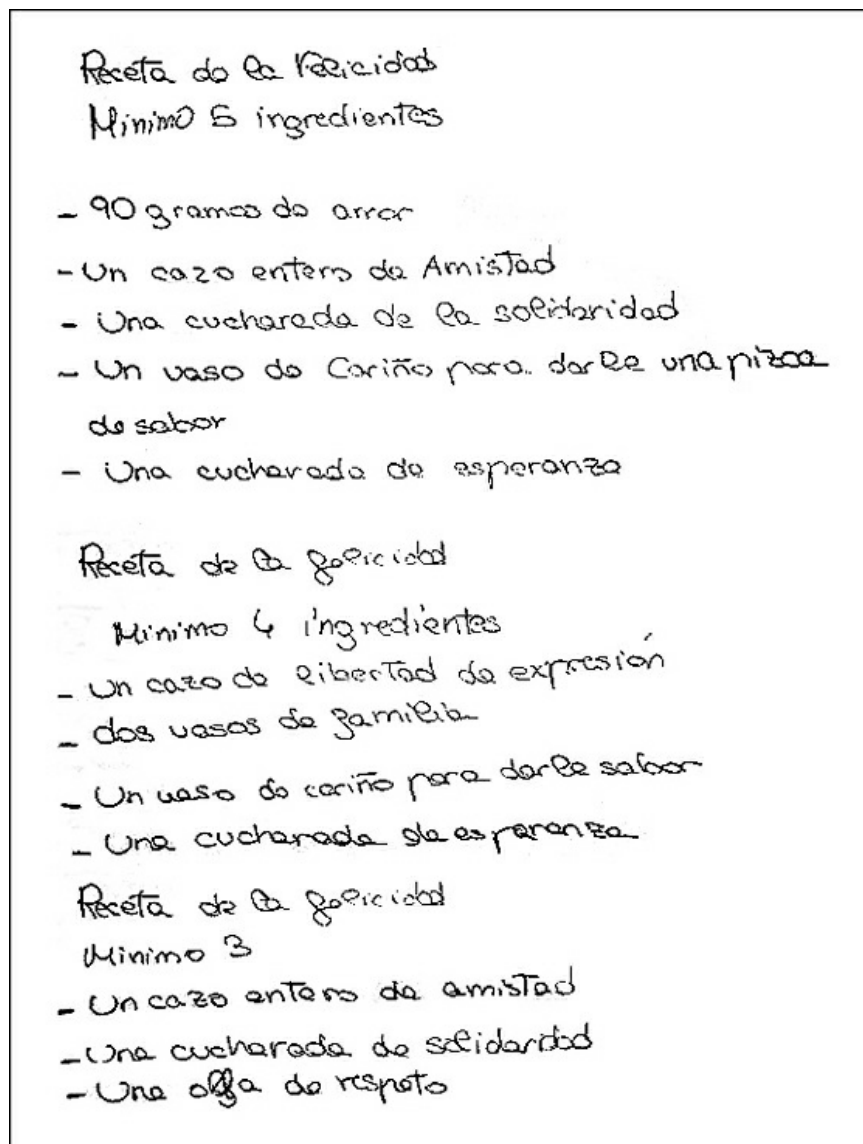 Receta de la Felicidad
Minimo 5 ingredientes
- 90 gramos de amor
- Un cazo entero de Amistad
- Una cucharada de la solidaridad
- Un vaso de Cariño para darle una pizca
de sabor
- Una cucharada de esperanza
Receta de la felicidad
Minimo 4 ingredientes
- Un cazo de libertad de expresión
- dos vasos de familia
- Un vaso de cariño para darle sabor
- Una cucharada de esperanza
Receta de la felicidad
Minimo 3
- Un cazo entero de amistad
- Una cucharada de solidaridad
- Una olla de respeto